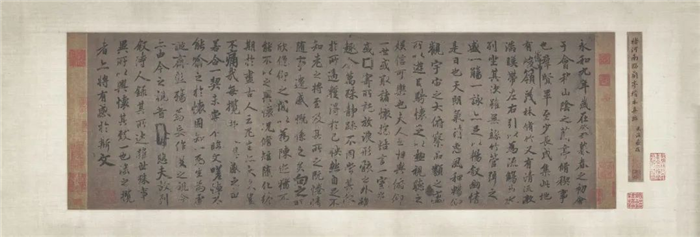 褚河南臨蘭亭絹本真跡
永和九年歲在癸丑暮春之初會
于會稽山陰之蘭亭脩稧事
也羣賢畢至少長咸集此地
有崇山峻領茂林脩竹又有清流激
湍暎帶左右引以為流觴曲水
列坐其次雖無絲竹管弦之
盛一觴一詠亦足以暢敘幽情
是日也天朗氣清惠風和暢仰
觀宇宙之大俯察品類之盛
所以遊目騁懷足以極視聽之
娛信可樂也夫人之相與俯仰
一世或取諸懷抱悟言一室之內
或因寄所託放浪形骸之外雖
趣舍萬殊靜躁不同當其欣
於所遇暫得於己快然自足不
知老之將至及其所之既惓情
隨事遷感慨係之矣向之所
欣俛仰之間以為陳迹猶不
能不以之興懷況脩短隨化終
期於盡古人云死生亦大矣豈
不痛哉每攬昔人興感之由
若合一契未嘗不臨文嗟悼不
能喻之於懷固知一死生為虛
誕齊彭殤為妄作後之視今
亦由今之視昔悲夫故列
敘時人錄其所述雖世殊事
異所以興懷其致一也後之攬
者亦將有感於斯文